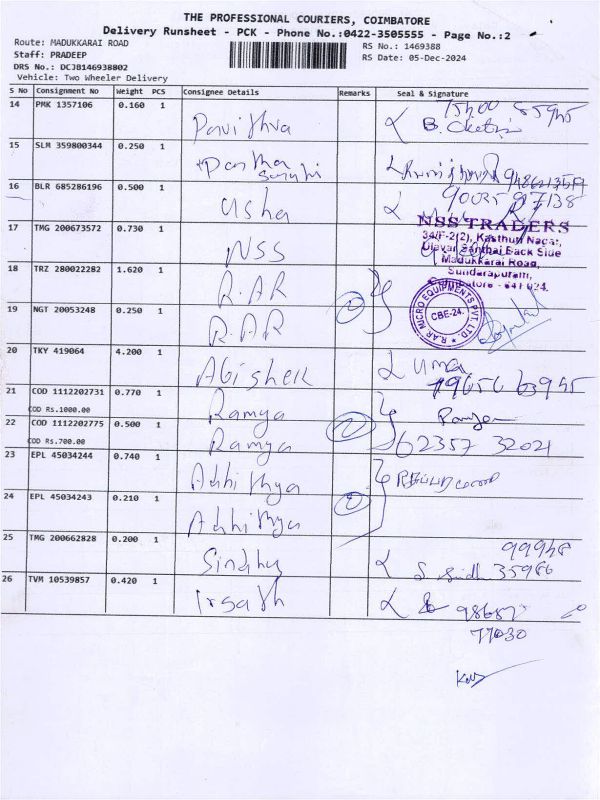 THE PROFESSIONAL COURIERS, COIMBATORE
Delivery Runsheet - PCK - Phone No.:0422-3505555 - Page No.:2
Route: MADUKKARAI ROAD
RS No.: 1469388
Staff: PRADEEP
RS Date: 05-Dec-2024
DRS No.: DCJB146938802
Vehicle: Two Wheeler Delivery
S No Consignment No Weight PCS Consignee Details Remarks Seal & Signature
14 PMK 1357106 0.160 1 Pavithra
15 SLM 359800344 0.250 1
16 BLR 685286196 0.500 1 Usha
17 TMG 200673572 0.730 1 NSS
NSS TRADERS
34/F-2(2), Kasthuri Nagar,
Ulavar Santhai Back Side
Madukkarai Road,
Sundarapuram,
Coimbatore - 641 024.
18 TRZ 280022282 1.620 1 R.AR
19 NGT 20053248 0.250 1 R.AR
2
R.AR MICRO EQUIPMENTS PVT. LTD
CBE-24.
20 TKY 419064 4.200 1 Abishek Uma
21 COD 1112202731 0.770 1 Ramya
COD Rs.1000.00
22 COD 1112202775 0.500 1 Ramya 2 62357 32021
COD Rs.700.00
23 EPL 45034244 0.740 1 Adhithya
24 EPL 45034243 0.210 1 Adhithya 2
25 TMG 200662828 0.200 1 Sindhu 99948
35986
26 TVM 10539857 0.420 1 Irsath 98657
77030